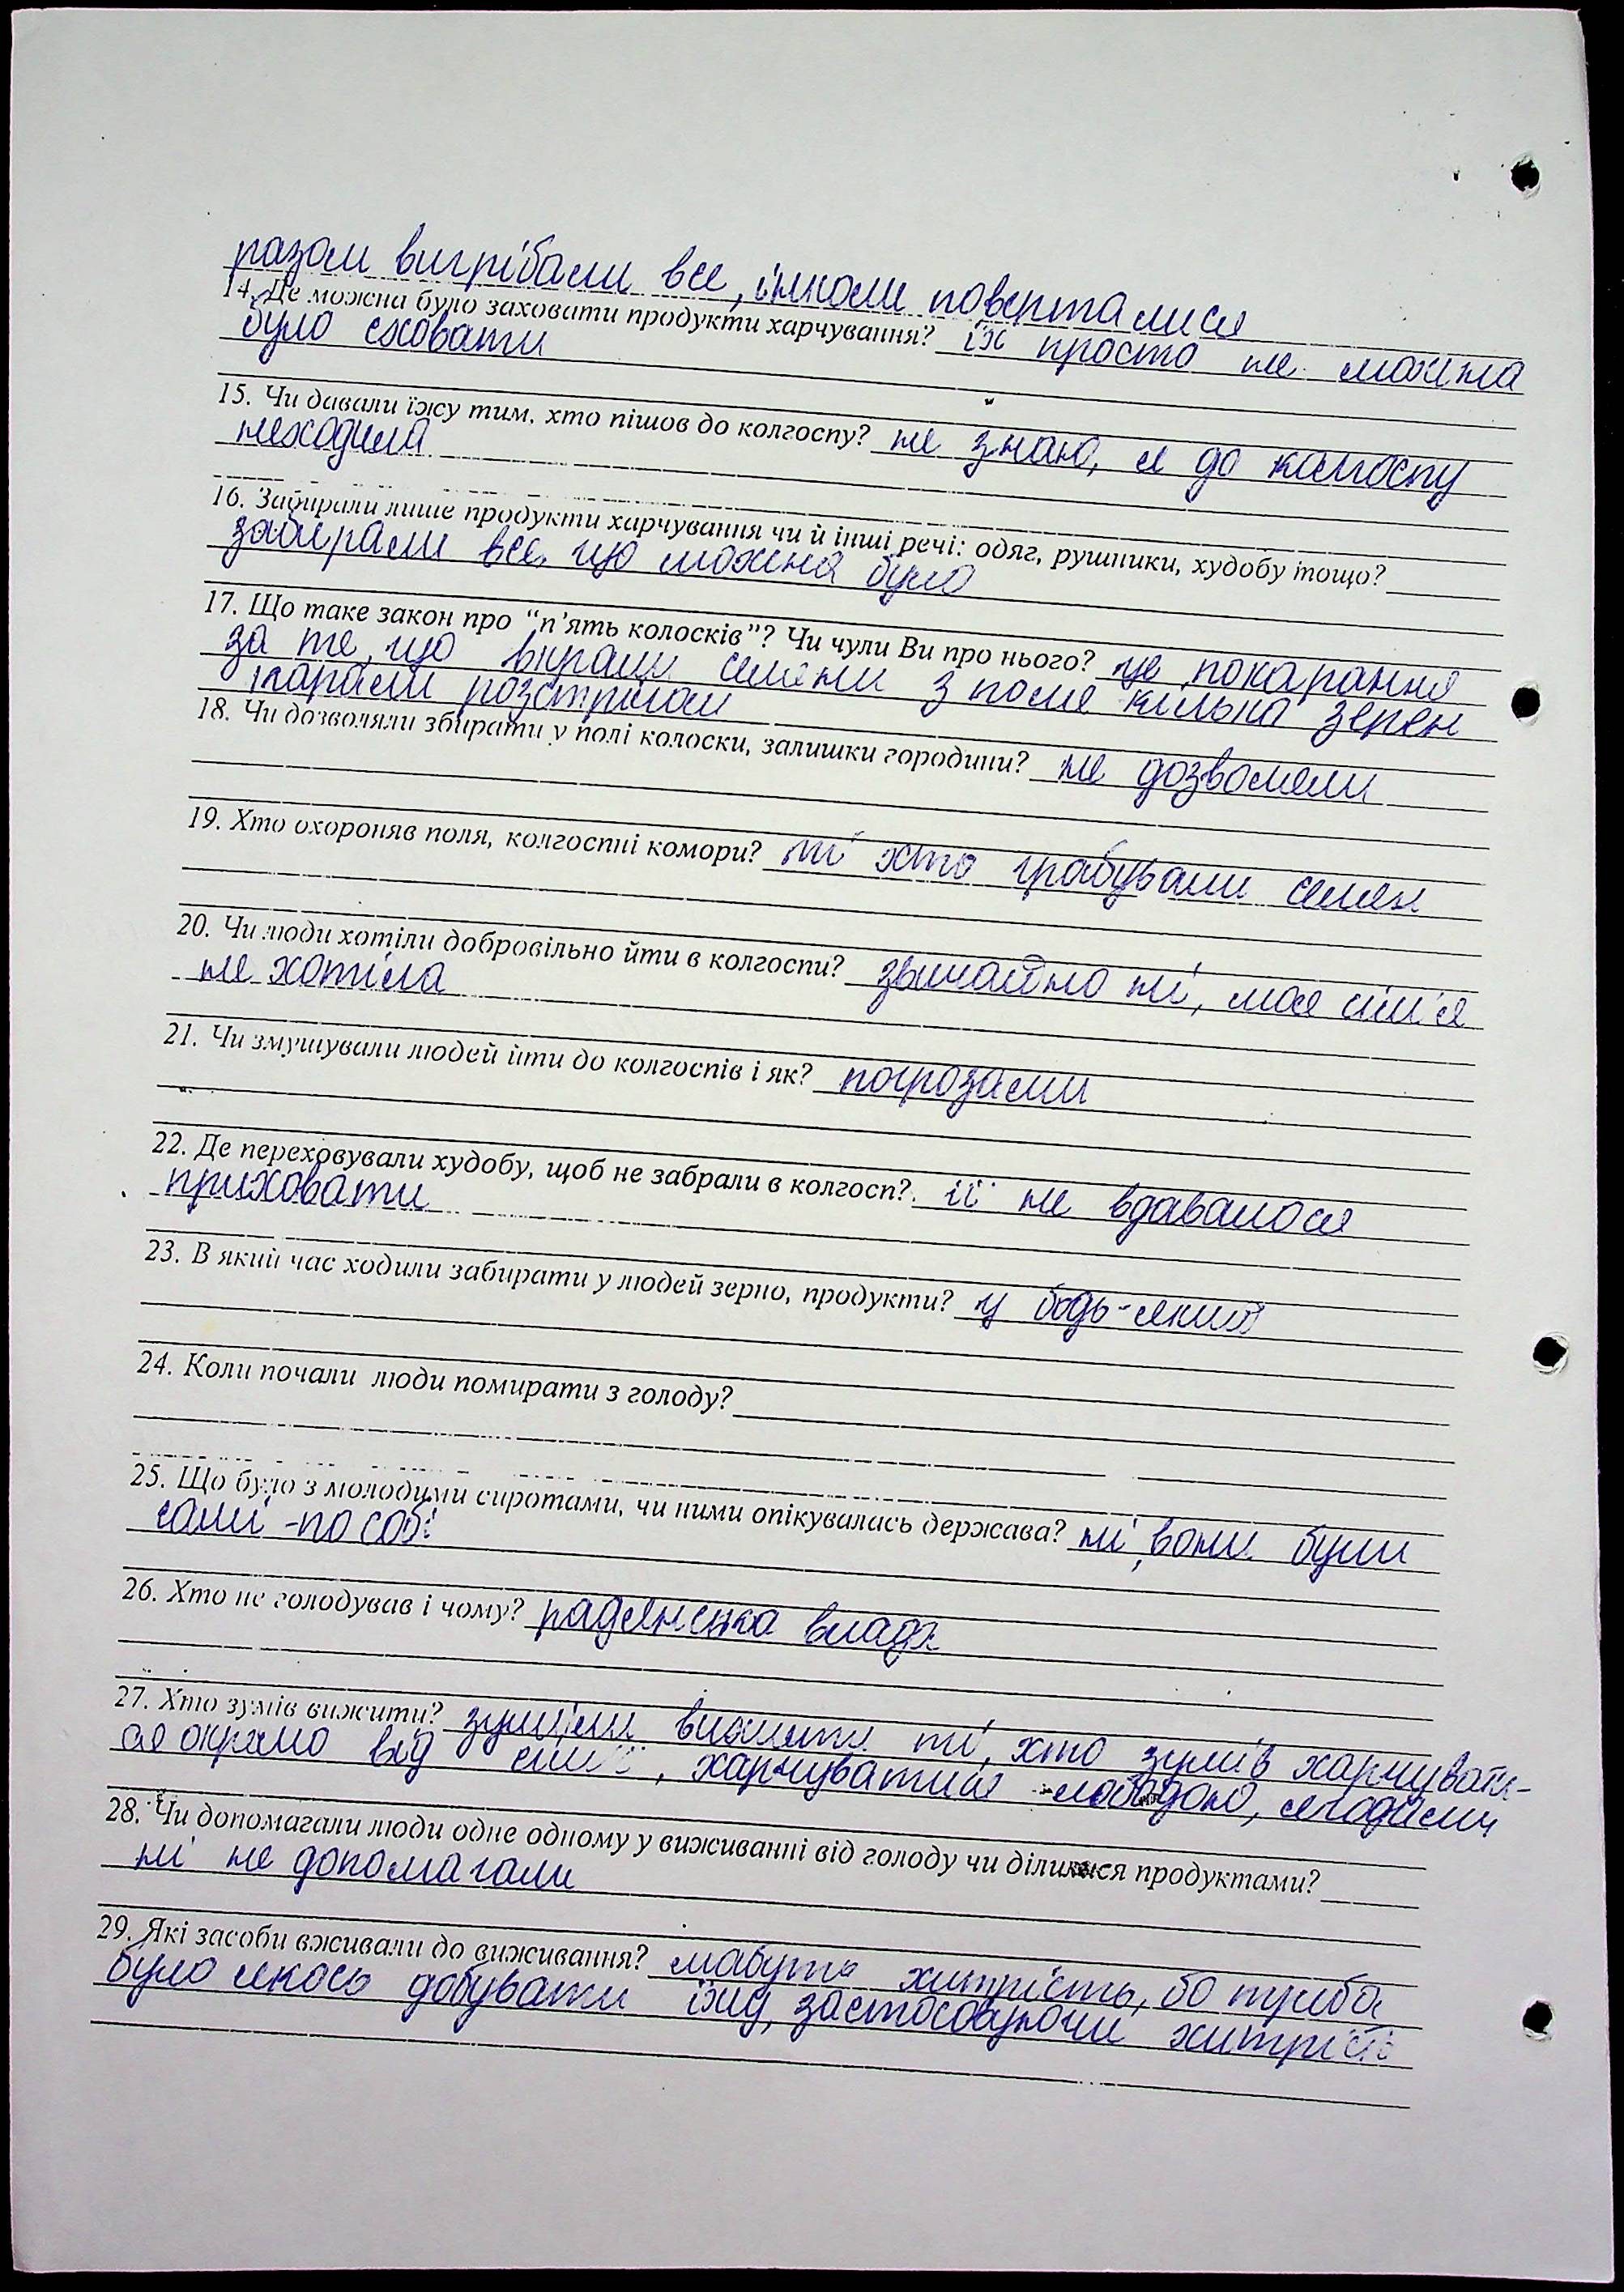 разом вигрібали все, інколи поверталися
14. Де можна було заховати продукти харчування? їх просто не можна
було сховати
15. Чи давали їжу тим, хто пішов до колгоспу? не знаю, я до колгоспу
неходила
16. Забирали лише продукти харчування чи й інші речі: одяг, рушники, худобу тощо?
забирали все, що можна було
17. Що таке закон про “п’ять колосків”? Чи чули Ви про нього? це покарання
за те, що вкрали селяни з поля кілька зерен
карали розстрілом
18. Чи дозволяли збирати у полі колоски, залишки городини? не дозволяли
19. Хто охороняв поля, колгоспні комори? ті хто грабували селян
20. Чи люди хотіли добровільно йти в колгоспи? звичайно ні, моя сім'я
не хотіла
21. Чи змушували людей йти до колгоспів і як? погрозами
22. Де переховували худобу, щоб не забрали в колгосп? її не вдавалося
приховати
23. В який час ходили забирати у людей зерно, продукти? у будь-який
24. Коли почали люди помирати з голоду?
25. Що було з молодими сиротами, чи ними опікувалась держава? ні, вони були
самі-по собі
26. Хто не голодував і чому? радянська влада
27. Хто зумів вижити? зуміли вижити ті, хто зумів харчувати-
ся окремо від сім'ї, харчуватися лободою, ягодами
28. Чи допомагали люди одне одному у виживанні від голоду чи ділилися продуктами?
ні не допомагали
29. Які засоби вживали до виживання? мабуть хитрість, бо треба
було якось добувати їжу, застосовуючи хитрість